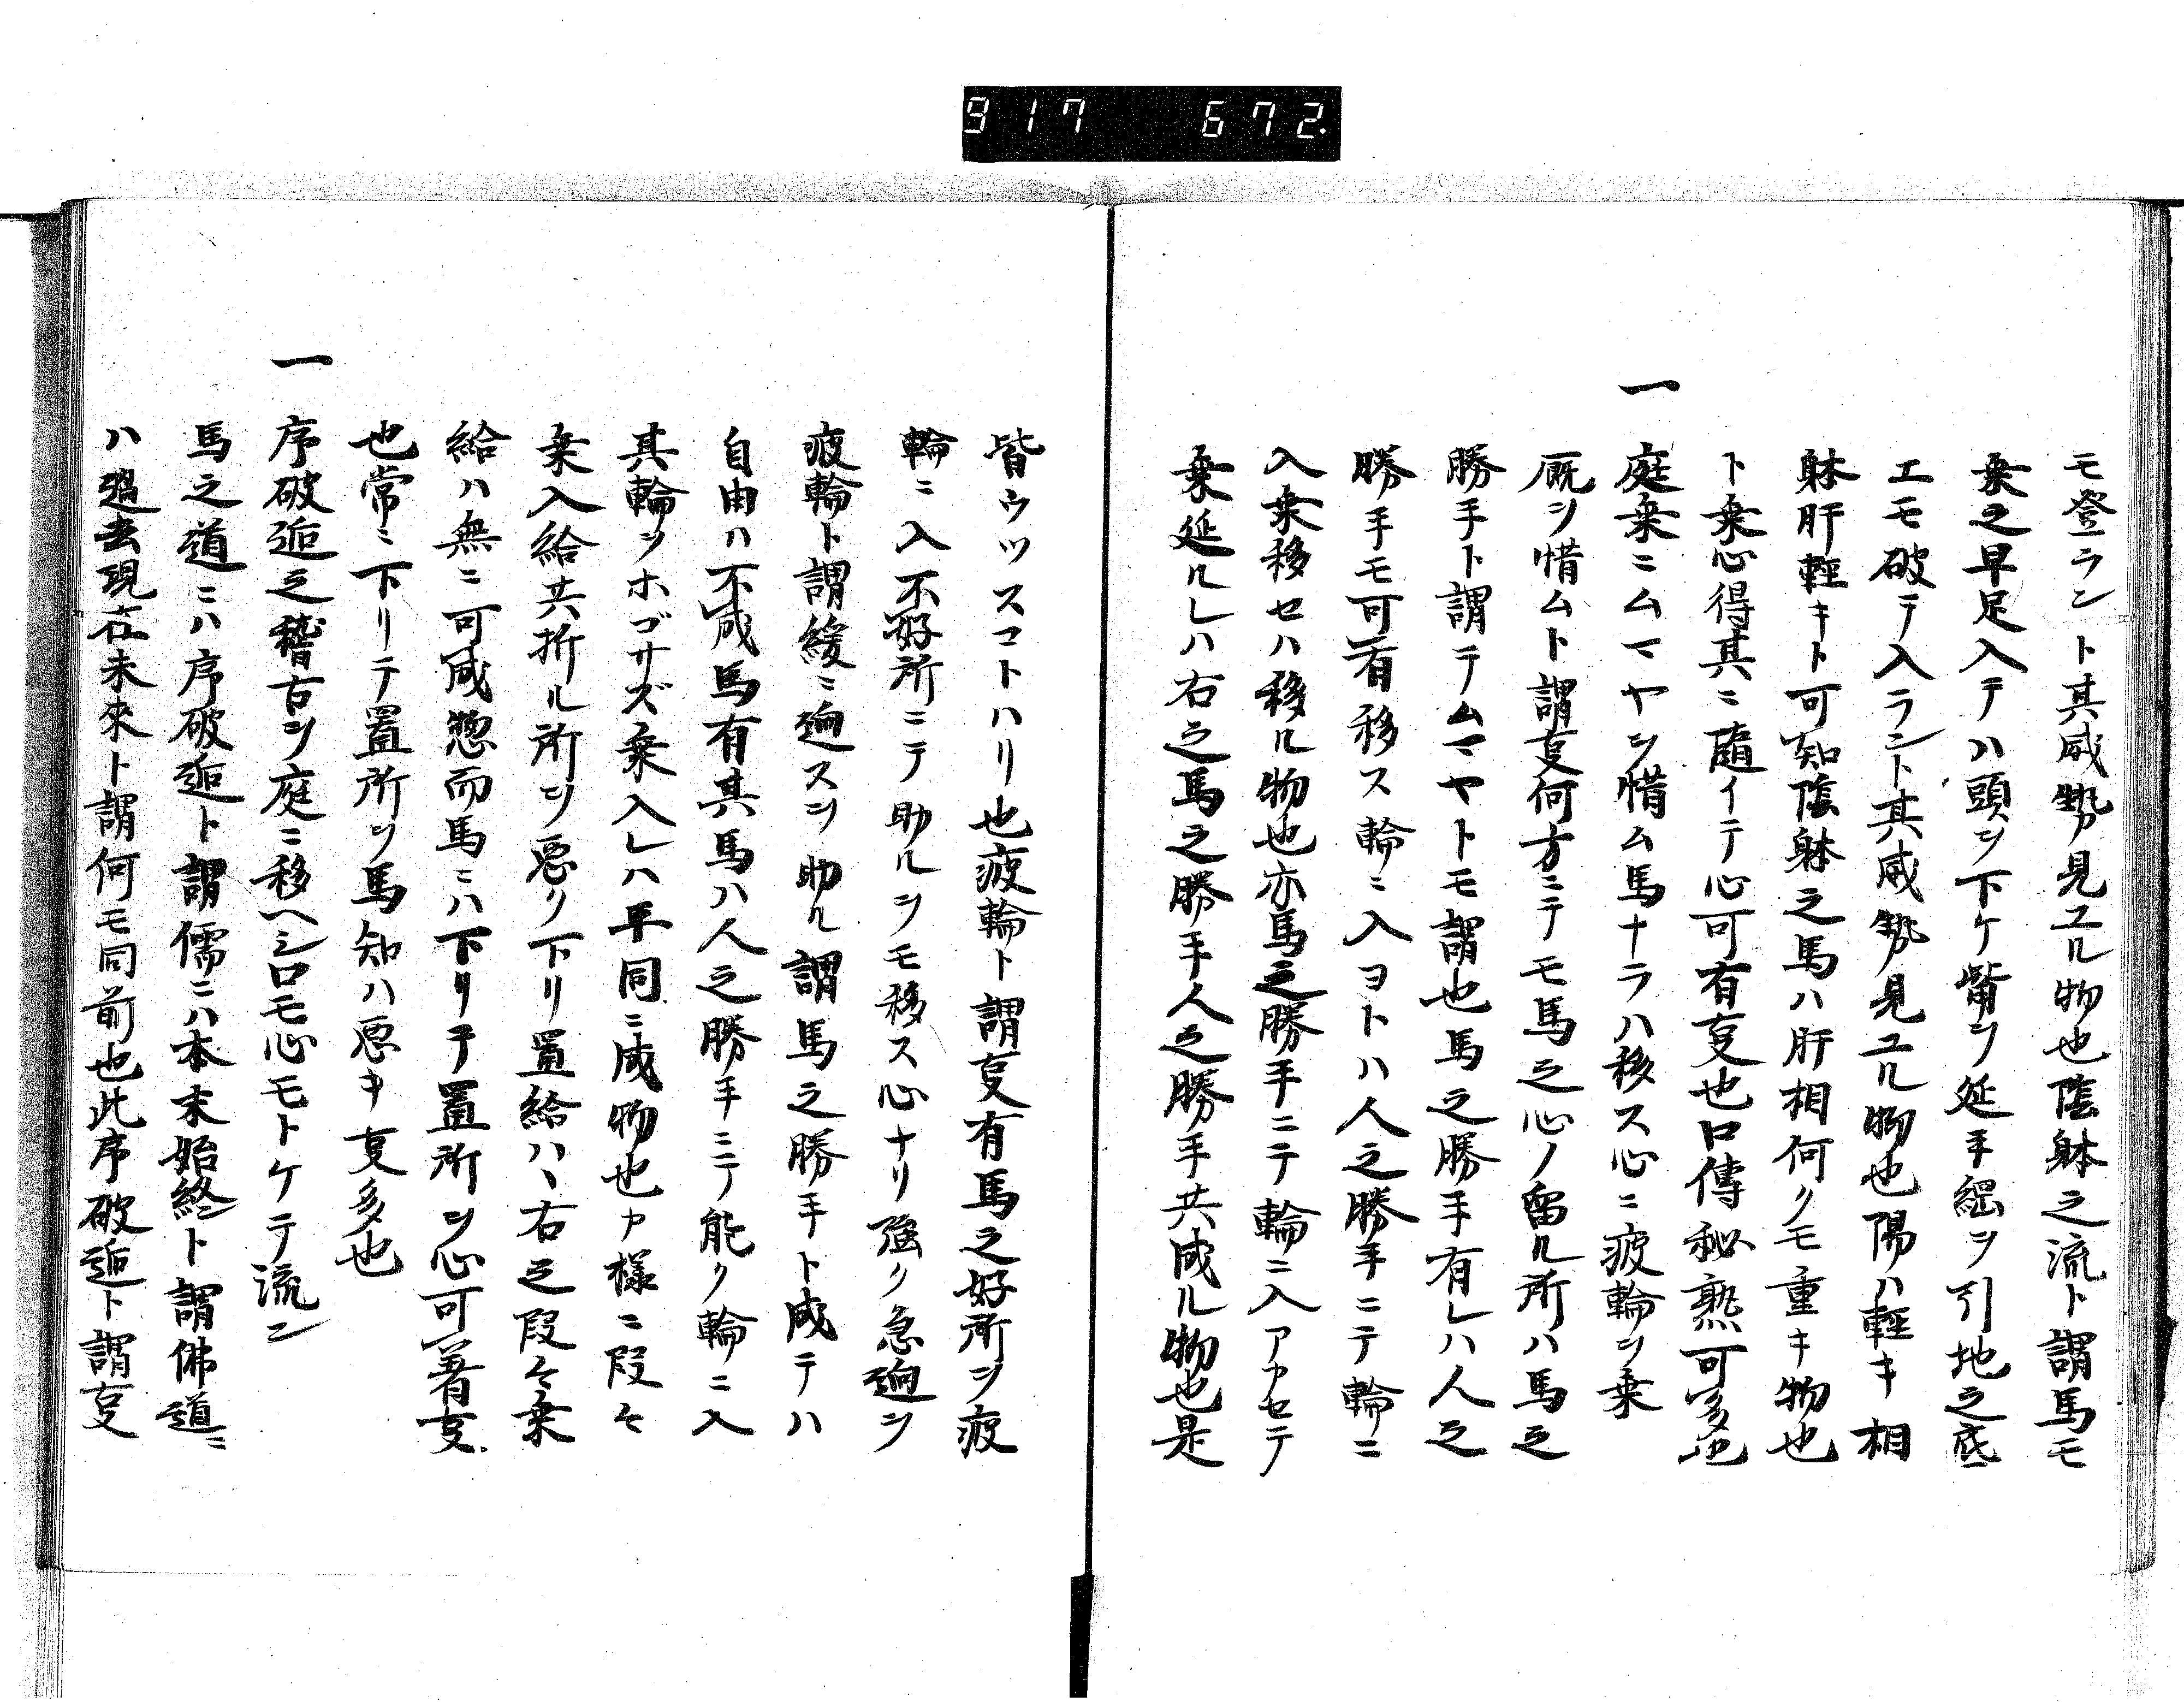 917 672.
モ登ラント其威勢見ユル物也陰躰之流ト謂馬モ
乗之早足入テハ頭ヲ下ケ觜ヲ延手縄ヲ引地之底
エモ破テ入ラント其威勢見ユル物也陽ハ軽キ相
躰肝軽キト可知陰躰之馬ハ肝相何クモ重キ物也
ト乗心得其ニ随イテ心可有叓也口傳秘熟可多也
一 庭乗ニムマヤヲ惜ム馬ナラハ移ス心ニ疲輪ヲ乗
厩ヲ惜ムト謂叓何方ニテモ馬之心ノ留ル所ハ馬之
勝手ト謂テムマヤトモ謂也馬之勝手有レハ人之
勝手モ可有移ス輪ニ入ヨトハ人之勝手ニテ輪ニ
入乗移セハ移ル物也亦馬之勝手ニテ輪ニ入アカセテ
乗延ルレハ右之馬之勝手人之勝手共成ル物也是
皆ウツスコトハリ也疲輪ト謂叓有馬之好所ヲ疲
輪ニ入不好所ニテ助ルヲモ移ス心ナリ強ク急廻ヲ
疲輪ト謂緩ニ廻スヲ助ル謂馬之勝手ト成テハ
自由ハ不成馬有其馬ハ人之勝手ニテ能ク輪ニ入
其輪ヲホゴサズ乗入レハ平同ニ成物也カ様ニ段々
乗入給共折ル所ヲ悪ク下リ置給ハヽ右之段々乗
給ハ無ニ可成惣而馬ニハ下リテ置所ヲ心可著叓
也常ニ下リテ置所ヲ馬知ハ悪キ叓多也
一 序破逅之稽古ヲ庭ニ移ヘシ口モ心モトケテ流ン
馬之道ニハ序破逅ト謂儒ニハ本末始終ト謂佛道ニ
ハ過去現在未來ト謂何モ同前也此序破逅ト謂叓